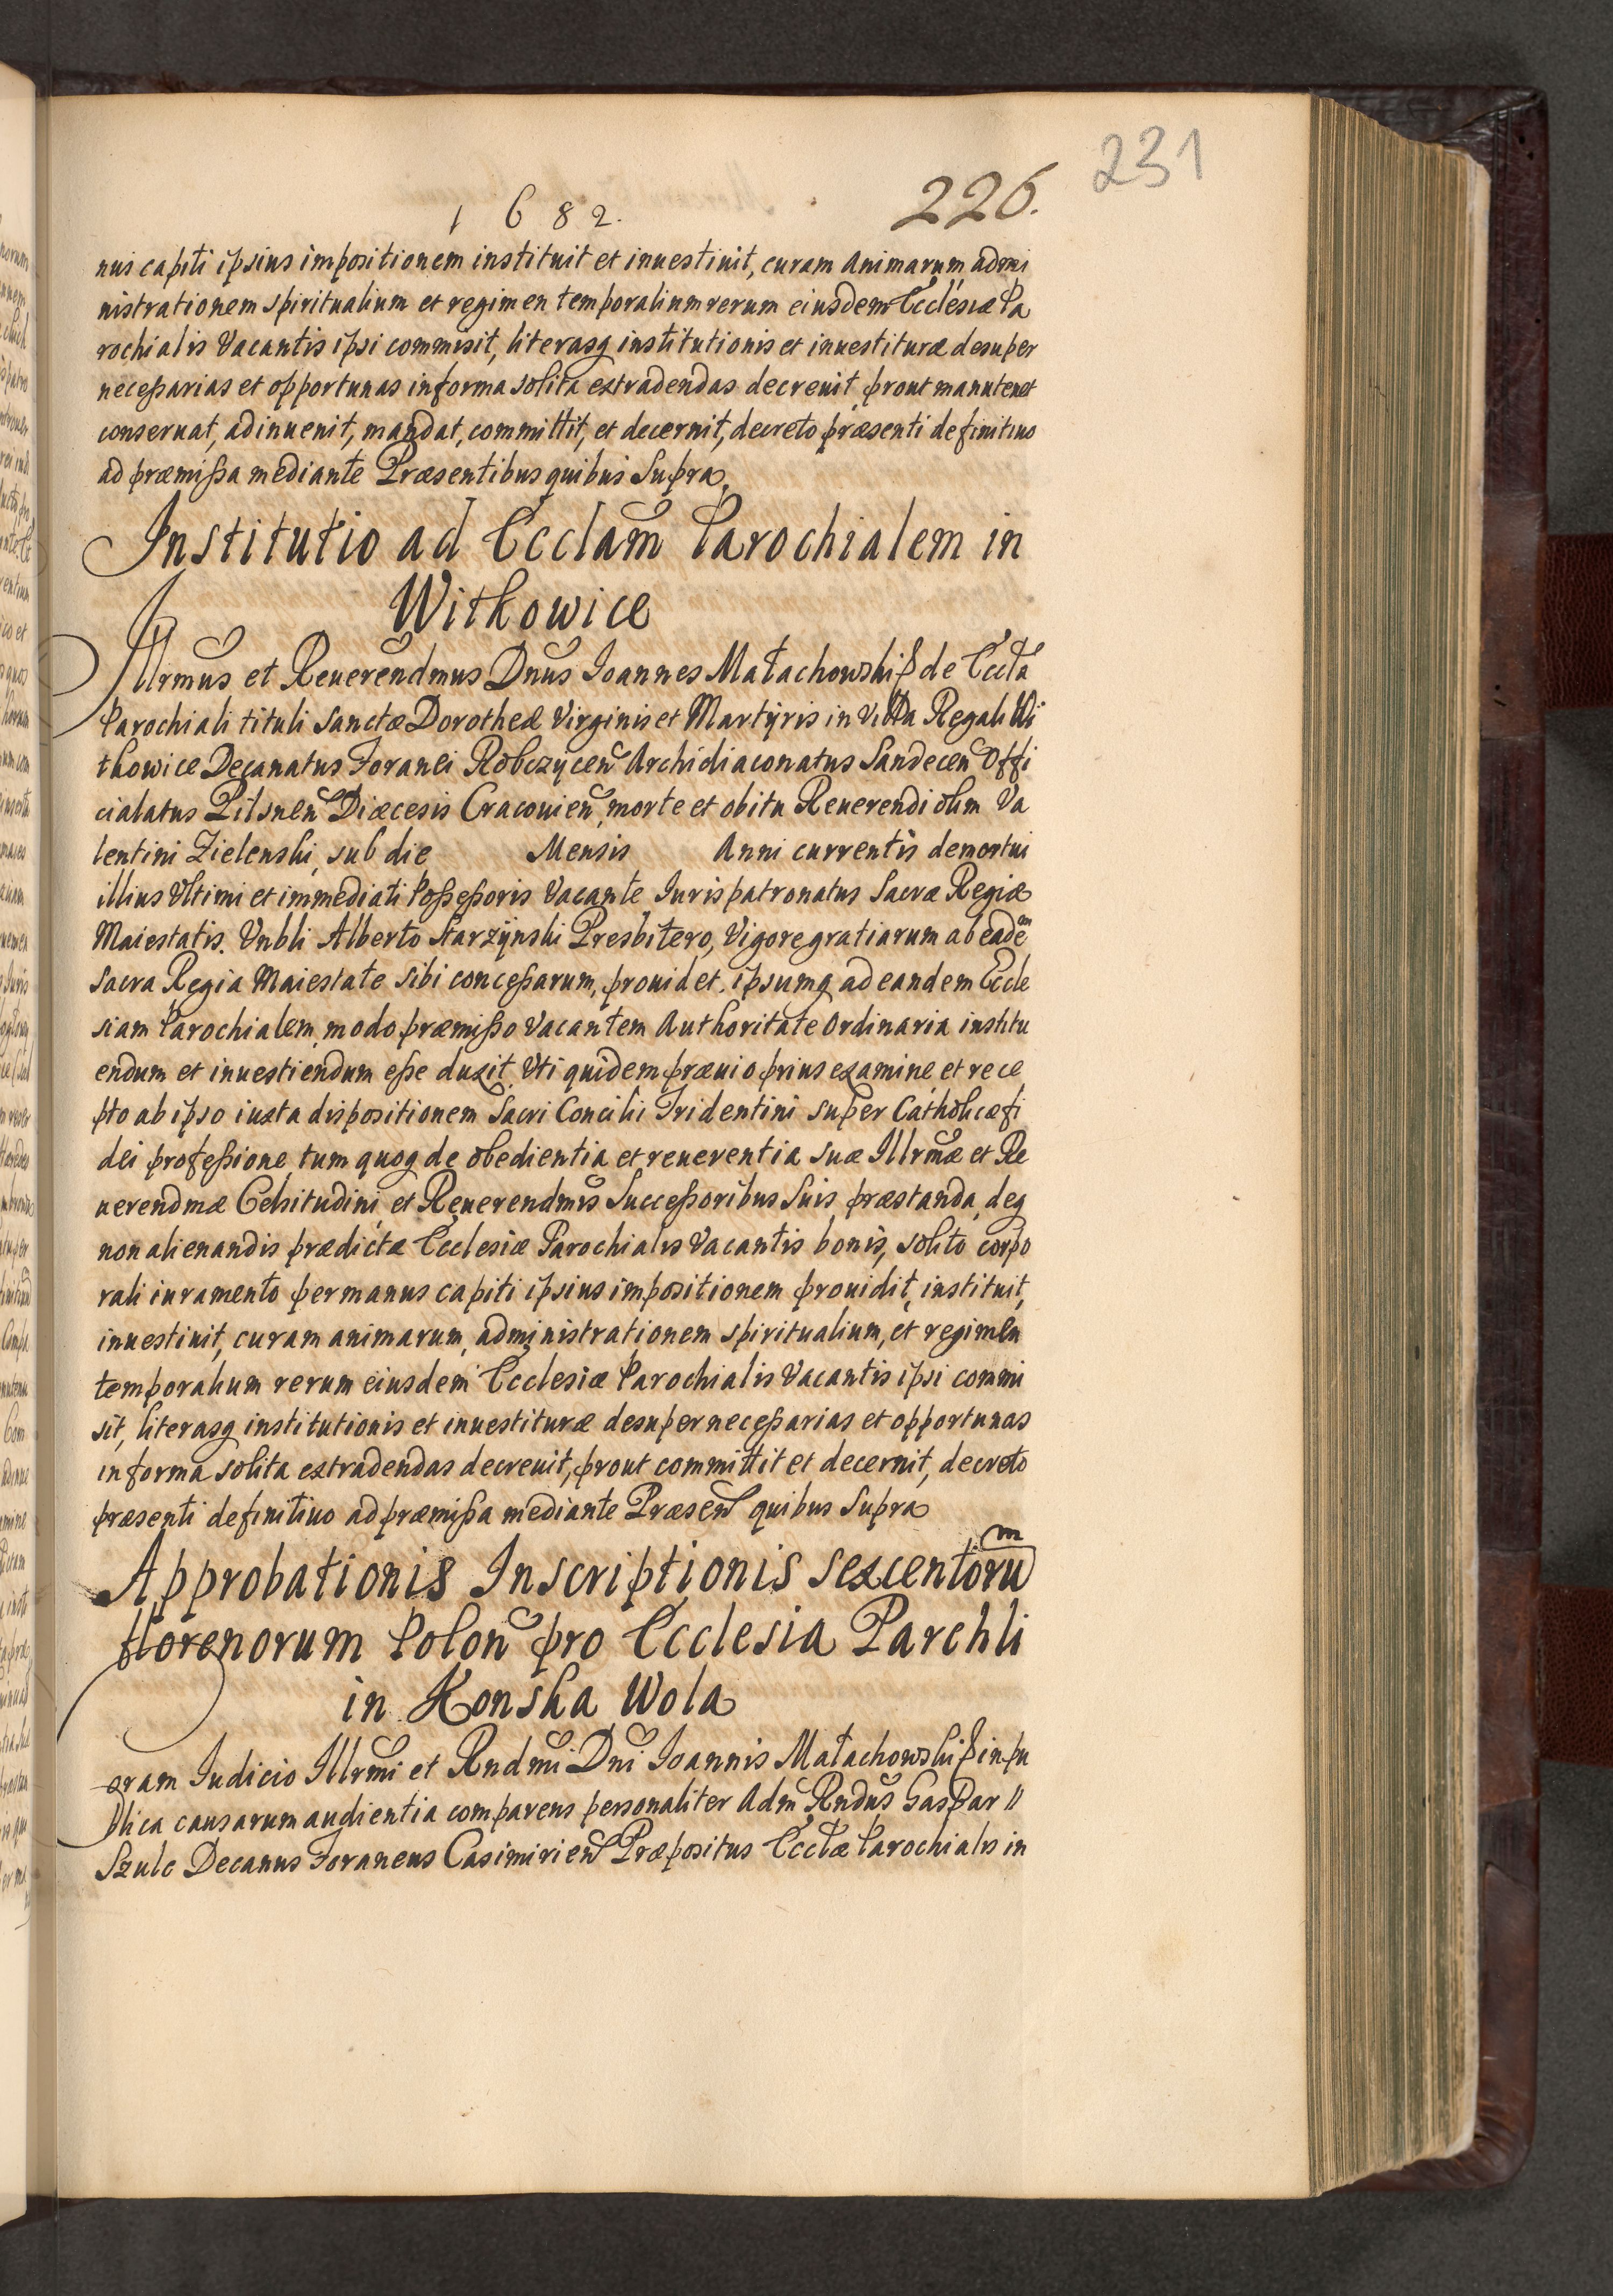 231
1682. 226.
nus capiti ipsius impositionem instituit et inuestiuit, curam Animarum admi
nistrationem spiritualium et regimen temporalium rerum eiusdem Ecclesiæ Pa
rochialis Vacantis ipsi commisit, literasq institutionis et inuestituræ desuper
neceßarias et opportunas in forma solita extradendas decreuit, prout manutenet
conseruat, adinuenit, mandat, committit, et decernit, decreto præsenti definitiuo
ad præmißa mediante Præsentibus quibus Supra.
Institutio ad Eccla͠m Parochialem in
Witkowice
Illrm͠us et Reuerendm͠us Dn͠us Ioannes Małachowski ß de Eccl͠a
Parochiali tituli Sanctæ Dorotheæ Virginis et Martÿris in Villa Regali Wi
tkowice Decanatus Foranei Robczÿcen͠ Archidiaconatus Sandecen͠ Offi
cialatus Pilsnen͠ Diæcesis Cracouien͠, morte et obitu Reuerendi olim Va
lentini Zielenski, sub die Mensis Anni currentis demortui
illius Vltimi et immediati Poßeßoris Vacante, Iuris patronatus Sacræ Regiæ
Maiestatis. Vnbli Alberto Starzÿnski Presbitero, Vigore gratiarum ab eadem
Sacra Regia Maiestate sibi conceßarum, prouidet. ipsumq ad eandem Eccle
siam Parochialem, modo præmißo Vacantem Authoritate Ordinaria institu
endum et inuestiendum eße duxit. Vti quidem præuio prius examine, et rece
pto ab ipso iuxta dispositionem Sacri Concilii Tridentini super Catholicæ fi
dei profeßione, tum quoq de obedientia et reuerentia suæ Illrm͠æ et Re
uerendmæ Celsitudini, et Reuerendm͠is Succeßoribus Suis præstanda, deq
non alienandis prædictæ Ecclesiæ Parochialis Vacantis bonis, solito corpo
rali iuramento per manus capiti ipsius impositionem prouidit, instituit,
inuestiuit, curam animarum, administrationem spiritualium, et regimen
temporalium rerum eiusdem Ecclesiæ Parochialis Vacantis ipsi commi
sit, literasq institutionis et inuestituræ desuper neceßarias et opportunas
in forma solita extradendas decreuit, prout committit et decernit, decreto
præsenti definitiuo ad præmißa mediante Præsen͠ quibus Supra
Approbationis Inscriptionis sexcentorum
florenorum Polon͠ pro Ecclesia Parchli
in Konska Wola
Coram Iudicio Illrm͠i et Rndm͠i Dn͠i Ioannis Małachowski ß in pu
blica causarum audientia comparens personaliter Adm͠ Rndu͠s Gaspar //
Szulc Decanus Foraneus Casimirien͠ Præpositus Eccl͠æ Parochialis in